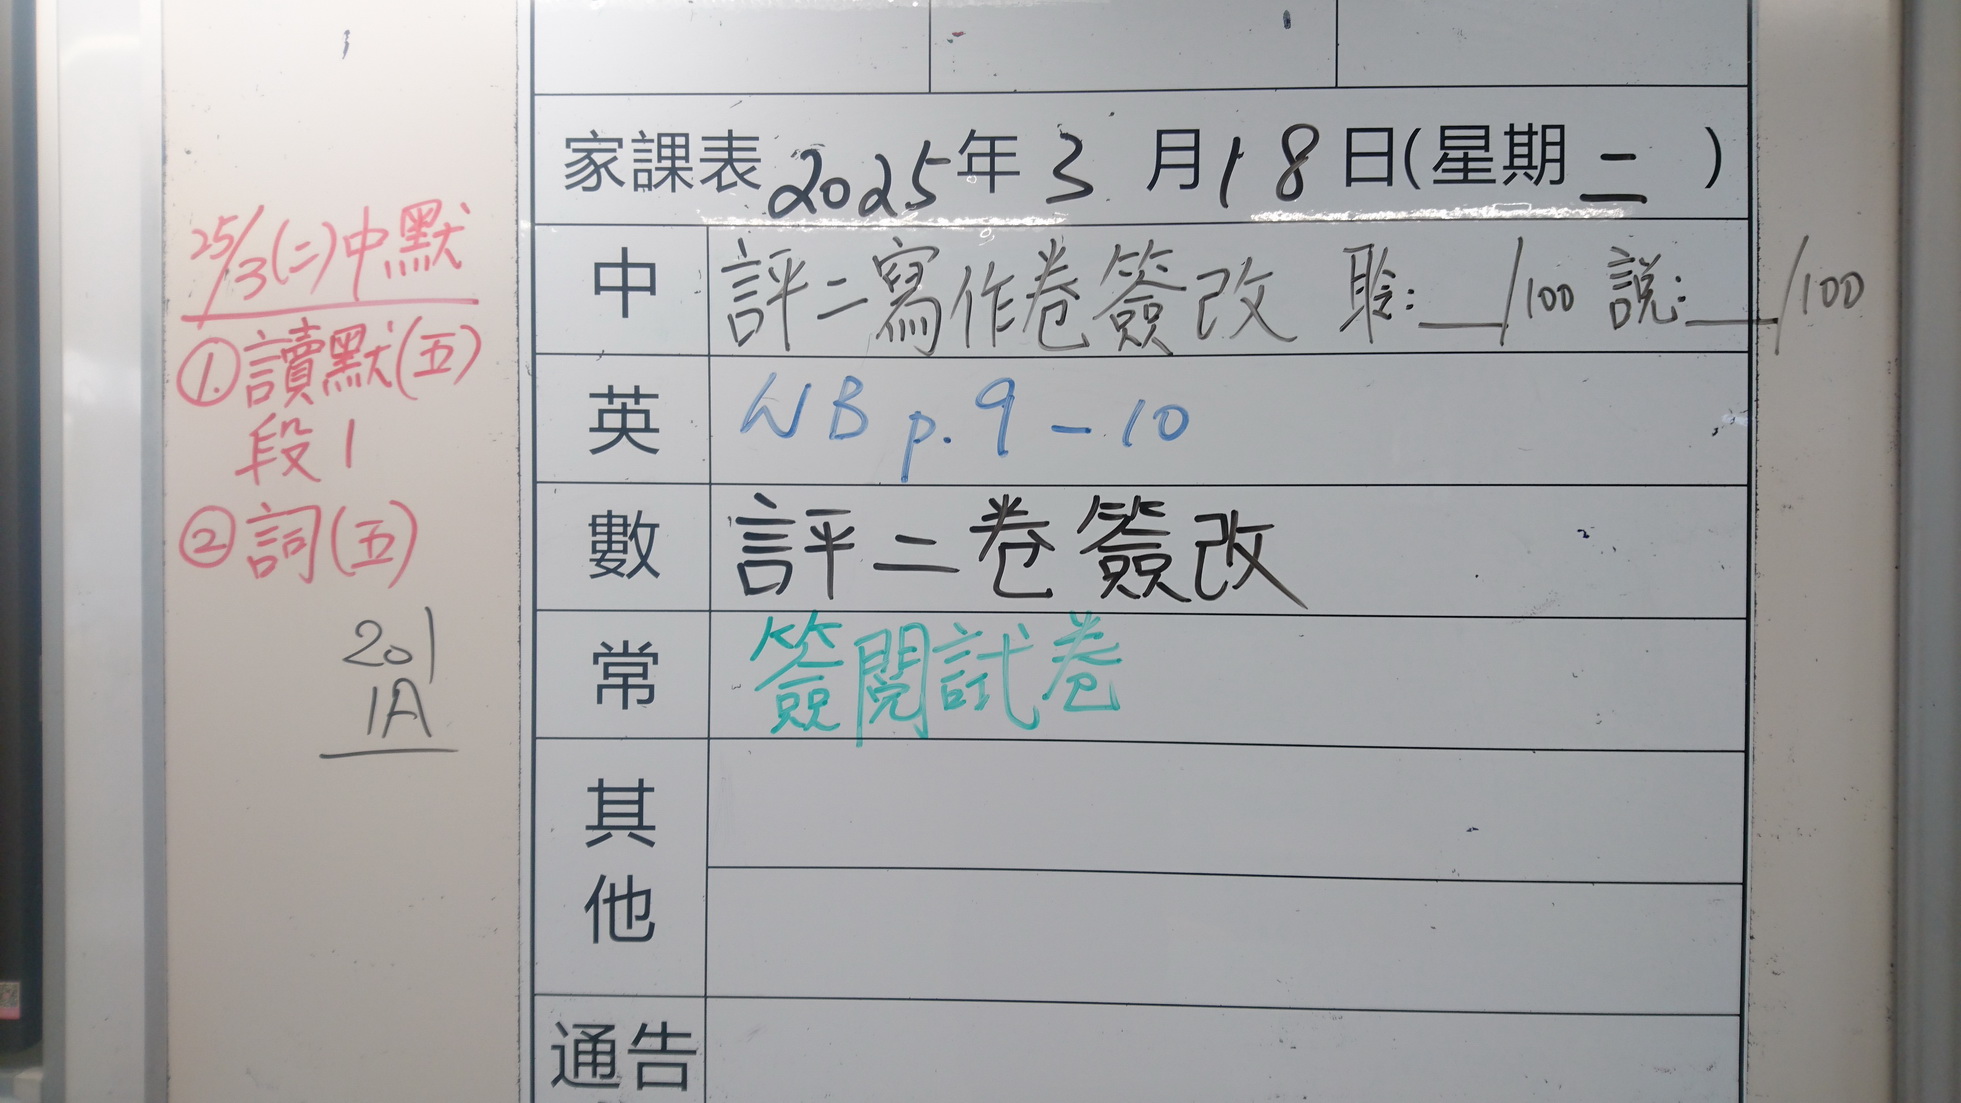 家課表 2025年3月18日(星期二)
中 評二寫作卷簽改 聆:__/100 說:__/100
英 WB p.9-10
數 評二卷簽改
常 簽閱試卷
其他
通告
25/3(二)中默
①讀默(五)
段1
②詞(五)
201
1A